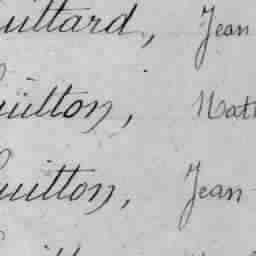 uillard, Jean
uilton, Nat
uitton, Jean